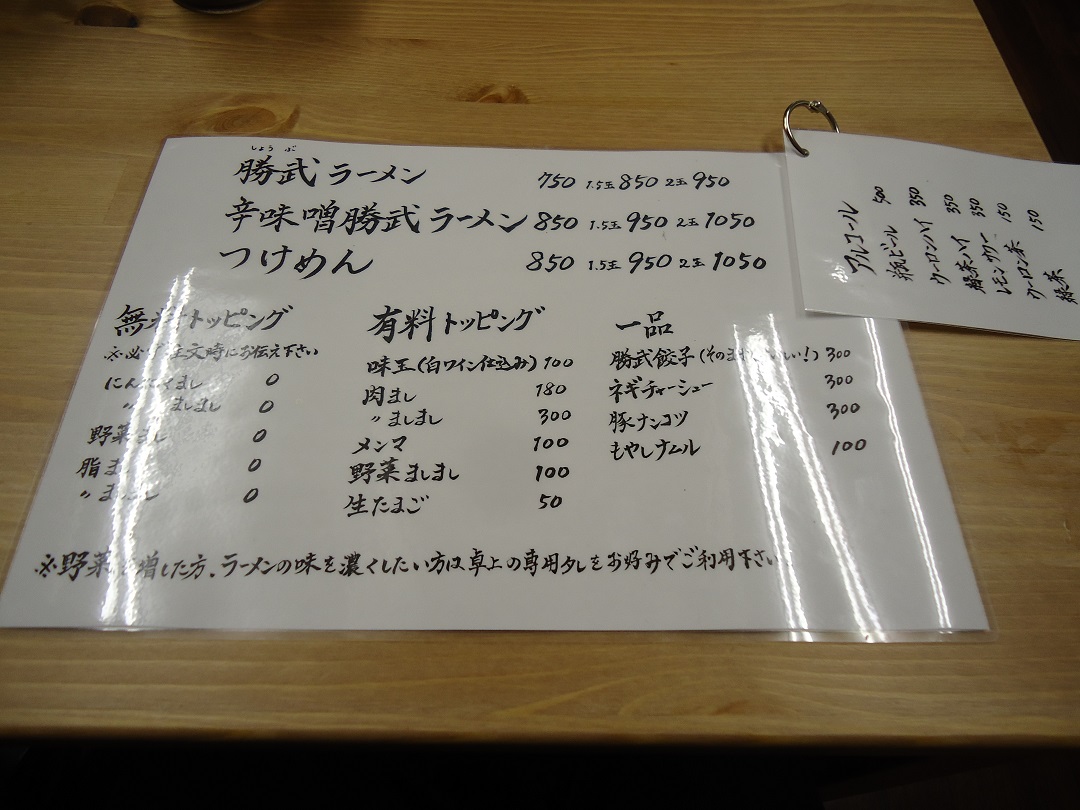 しょうぶ
勝武ラーメン 750 1.5玉 850 2玉 950
辛味噌勝武ラーメン 850 1.5玉 950 2玉 1050
つけめん 850 1.5玉 950 2玉 1050
無料トッピング
※必ず注文時にお伝え下さい
にんにくまし 0
〃ましまし 0
野菜まし 0
脂まし 0
〃ましまし 0
有料トッピング
味玉(白ワイン仕込み) 100
肉まし 180
〃ましまし 300
メンマ 100
野菜ましまし 100
生たまご 50
一品
勝武餃子(そのままおいしい!) 300
ネギチャーシュー 300
豚ナンコツ 300
もやしナムル 100
※野菜を増した方、ラーメンの味を濃くしたい方は卓上の専用タレをお好みでご利用下さい。
アルコール
瓶ビール 500
ウーロンハイ 350
緑茶ハイ 350
レモンサワー 350
ウーロン茶 150
緑茶 150